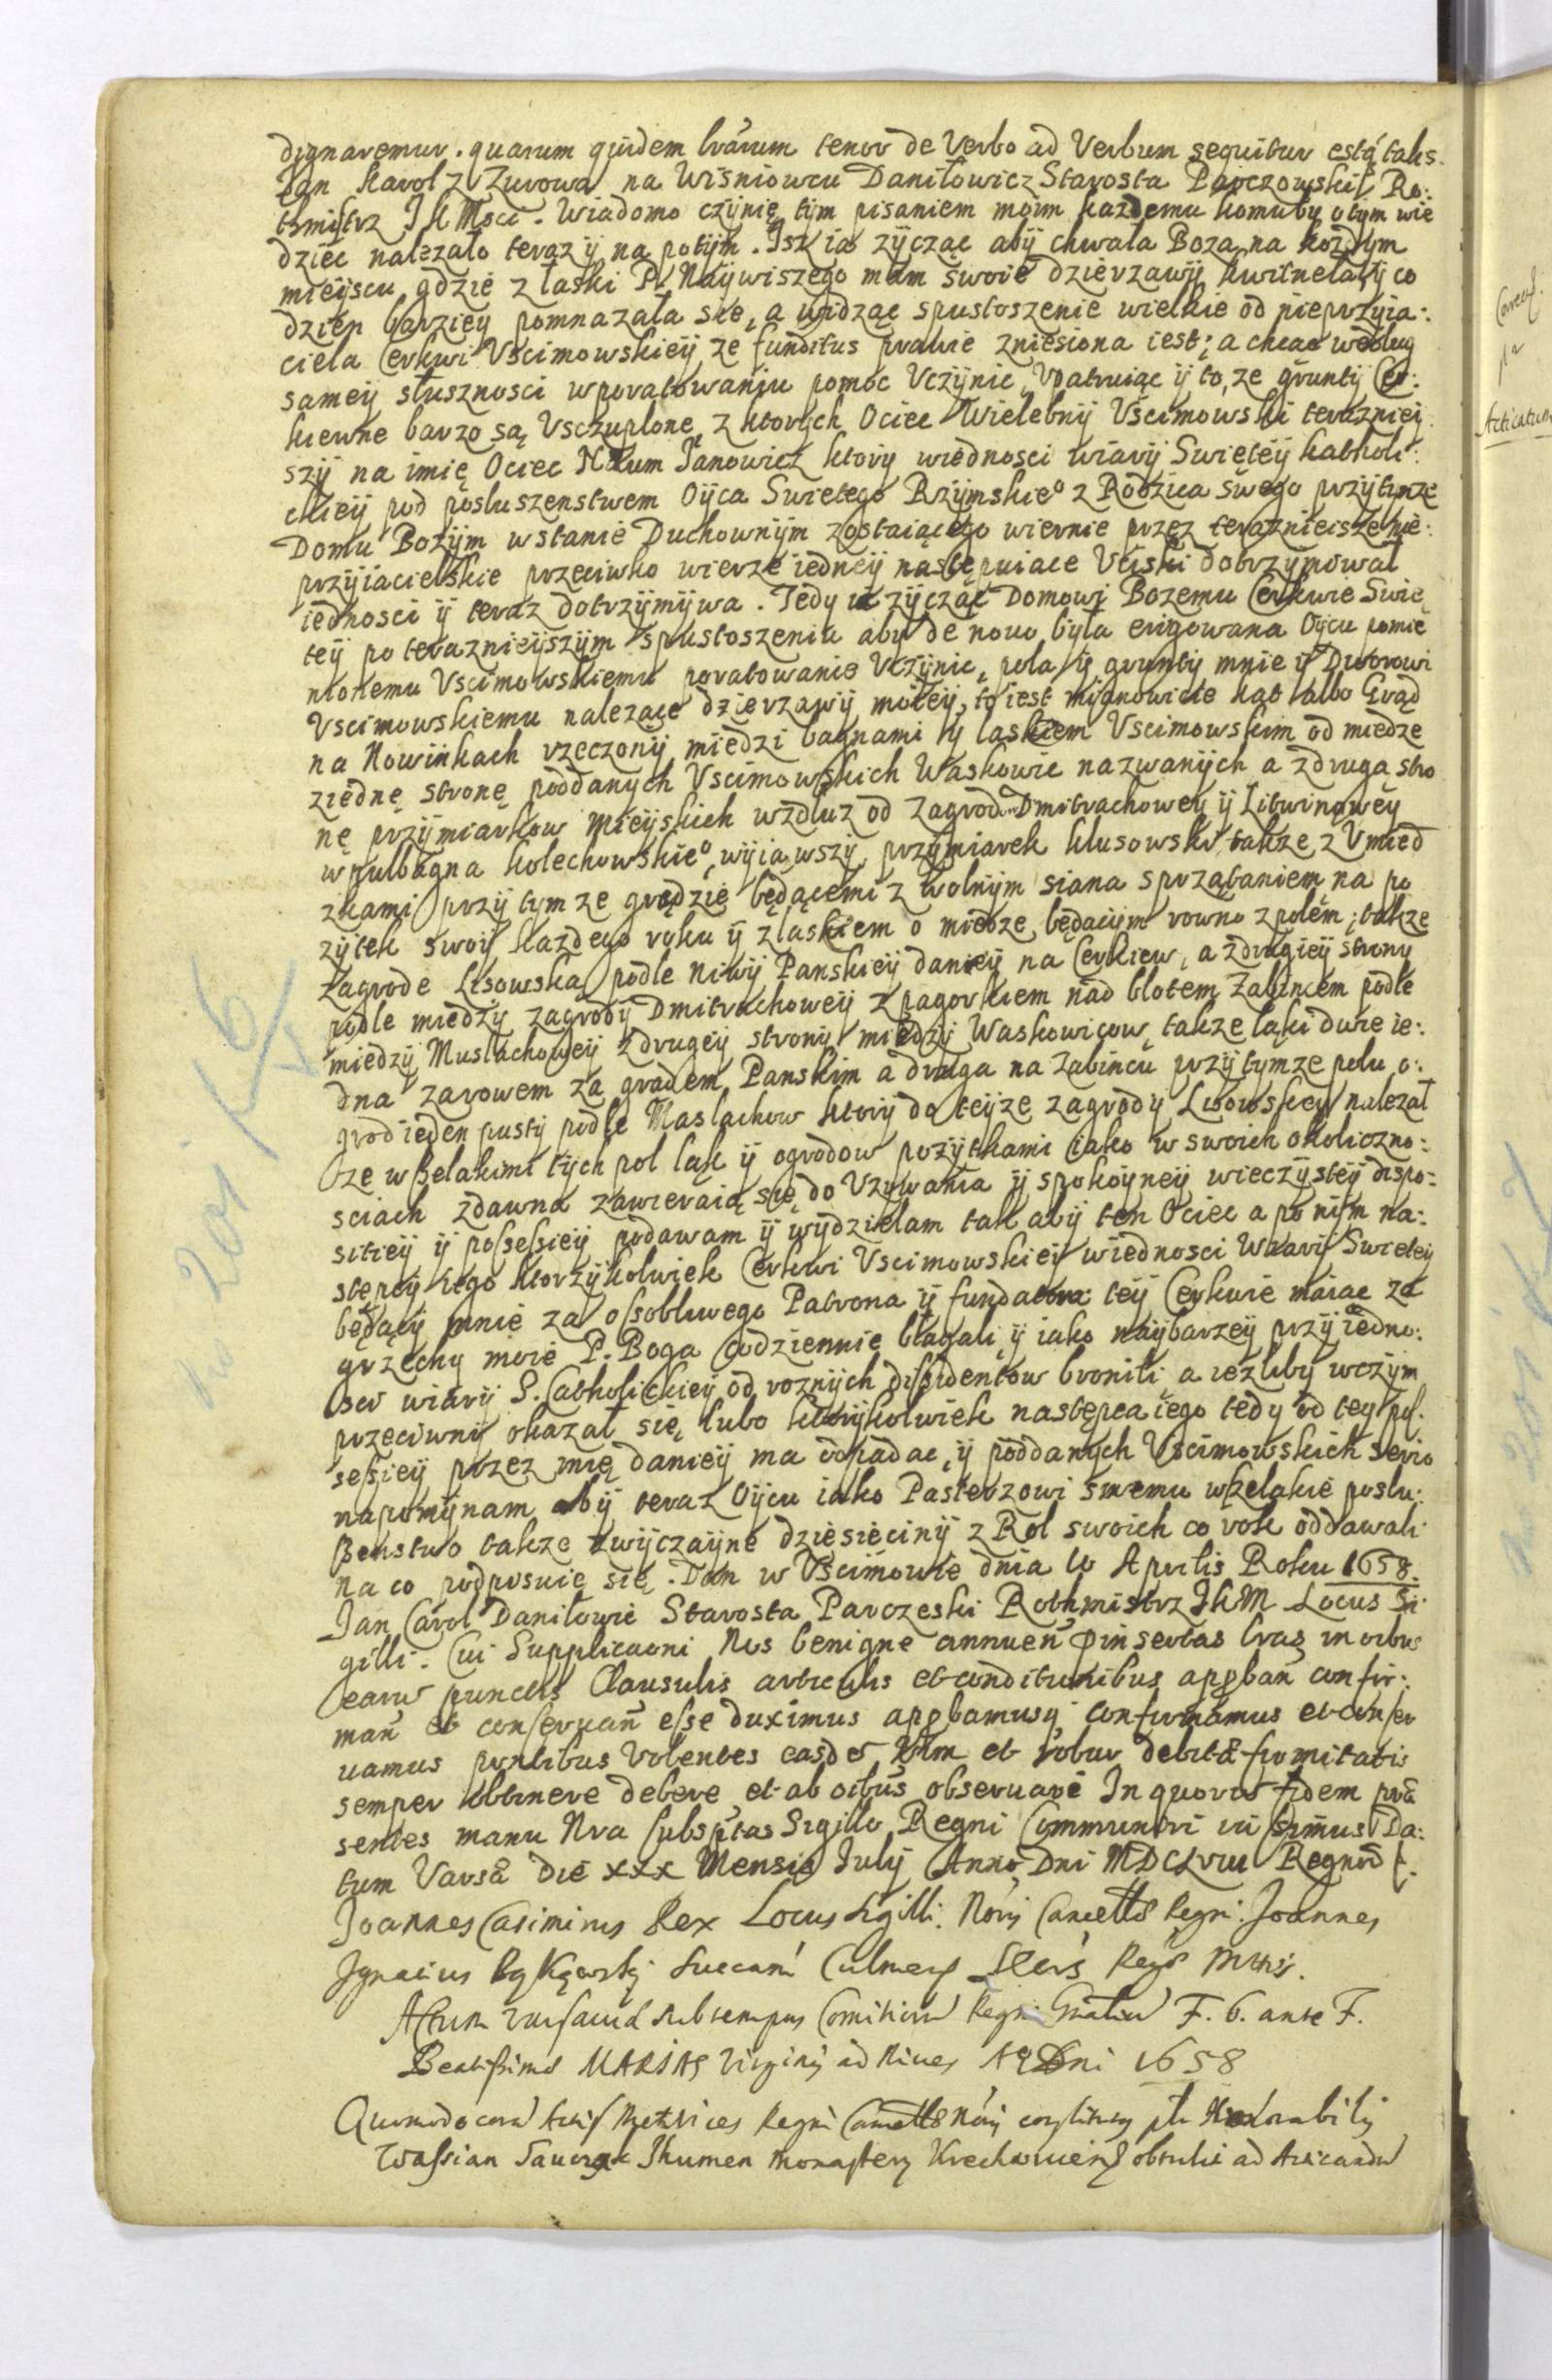 dignaremur. quarum quidem lrárum tenor de Verbo ad Verbum sequitur estq́ talis.
Jan Karol z Zurowa na Wisniowcu Daniłowicz Starosta Parczowskij Ro:
thmistrz J K Msci. Wiadomo czÿnię tÿm pisaniem moim kazdemu komuby o tÿm wie
dziec nalezało teraz ÿ na potÿm. Isz ia zÿcząc abÿ chwała Boza na kozdÿm
mieÿscu gdzie z łaski P. Naÿwiszego mam swoie dzierzawÿ kwitnełaÿ co
dzien barziey pomnazała sie, a widząc spustoszenie wielkie od nieprzÿia:
ciela Cerkwi Vscimowskieÿ ze funditus prawie zniesiona iest; a chcac według
sameÿ słusznosci w poratowaniu pomoc Vczÿnic, Vpatruiąc ÿ to, ze gruntÿ Cer:
kiewne barzo są Vsczuplone, z ktorÿch Ociec Wielebnÿ Vscimowski terazniey
szÿ na imię Ociec Naum Janowicz ktorÿ wiednosci wiarÿ Swięteÿ kathol:
ckieÿ pod posłuszenstwem Oÿca Swietego Rzÿmskieº z Rodzica swego przÿ tÿmze
Domu Bozÿm w stanie Duchownÿm zostaiącego wiernie przez teraznieisze nie:
przÿiacielskie przeciwko wierze iedneÿ nastepuiace Vciski dotrzÿmował
iednosci ÿ teraz dotrzÿmÿwa. Tedy ia zÿcząc Domowi Bozemu Cerkwie Swię
teÿ po terazniejszÿm spustoszeniu aby de nouo była erigowana Oÿcu pomie
nionemu Vscimowskiemu poratowanie Vczÿnic, pola ÿ gruntÿ mnie ÿ Dworowi
Vscimowskiemu nalezące dzierzawÿ moieÿ, to iest mianowicie kąt albo Grąd
na Nowinkach rzeczonÿ miedzi bagnami ÿ laskiem Vscimowskim od miedze
z iednę stronę poddanych Vscimowskich Waskowic nazwanÿch a z druga stro
nę przÿmiarkow Mieÿskich wzdłuz od zagrod Dmitrachoweÿ ÿ Litwinoweÿ
w puł bagna kolechowskieº, wÿiąwszÿ przÿmiarek klusowski takze z Vmied
zkami przÿ tÿm ze grądzie będącemi z wolnÿm siana sprzątaniem na po
zÿtek swoÿ kazdego roku ÿ z laskiem o miedze będącÿm rowno z polem; takze
zagrode Lisowska podle niwÿ Panskieÿ daneÿ na Cerkiew, a z drugieÿ strony
podle miedzÿ zagrodÿ Dmitrachoweÿ z pagorkiem nad błotem Zabincem podle
miedzÿ Muslachoweÿ z drugeÿ stronÿ miedzÿ Waskowicow, takze łąki dwie ie:
dna za rowem za grądem Panskim a druga na Zabincu przÿ tÿmze polu o:
grod ieden pustÿ podle Maslachow ktorÿ do teÿze zagrodÿ Lisowskeÿ nalezał
ze wszelakimi tÿch pol łąk ÿ ogrodow pozÿtkami iako w swoich okoliczno:
sciach zdawna zawieraią się do Vzÿwania ÿ spokoÿneÿ wieczÿsteÿ dispo:
siticÿ ÿ possessieÿ podawam ÿ wÿdzielam tak abÿ ten Ociec a po nim na:
stepcÿ iego ktorzÿkolwiek Cerkwi Vscimowskieÿ wiednosci Wiarÿ Swieteÿ
będącÿ mnie za ossobliwego Patrona ÿ fundatora teÿ Cerkwie maiac za
grzechy moie P. Boga codziennie błagali, ÿ iako naÿbarzeÿ przÿ iedno:
sci wiarÿ S. Catholickieÿ od roznÿch dissidentow bronili, a iezliby wczÿm
przeciwnÿ okazał się, lubo ktorÿkolwiek nastepca iego tedy od teÿ pos:
sessieÿ przez mię danieÿ ma odpadac, ÿ poddanÿch Vscimowskich serio
napomÿnam abÿ teraz Oÿcu iako Pasterzowi swemu wszelakie posłu:
szenstwo takze zwÿczaÿne dziesiecinÿ z Rol swoich co rok oddawali
na co podposuię się. Dan w Vscimowie dnia 10 Aprilis Roku 1658.
Jan Carol Daniłowic Starosta Parczeski Rothmistrz JKM Locus Si
gilli. Cui Supplicaoni Nos benigne annueñ pinsertas lras in oibus
earu punctis Clausulis articulis et conditionibus aprobañ confir:
mañ et conseruañ esse duximus aprobamusq confirmamus et conser
uamus pntibus Volentes easdē Vim et robur debitæ firmitatis
semper obtinere debere et ab oibus obseruari In quorū fidem præ
sentes manu Nra subsptas Sigillo Regni Communiri iussimus Da:
tum Varsā die xxx Mensis Julÿ Anno Dni MDCLVIII Regnor
Joannes Casimirus Rex Locus Sigilli. Joannes
Ignacius Bąkowskj Succam Culmens Regnj Mtis.
Actum Varsauiæ sub tempus Comitioru Regni F. 6. ante F.
Beatissimæ MARIAE Virginis ad Niues Aº Dni 1658
Regni
Ihumen Monastery obtulit ad
Acticatum